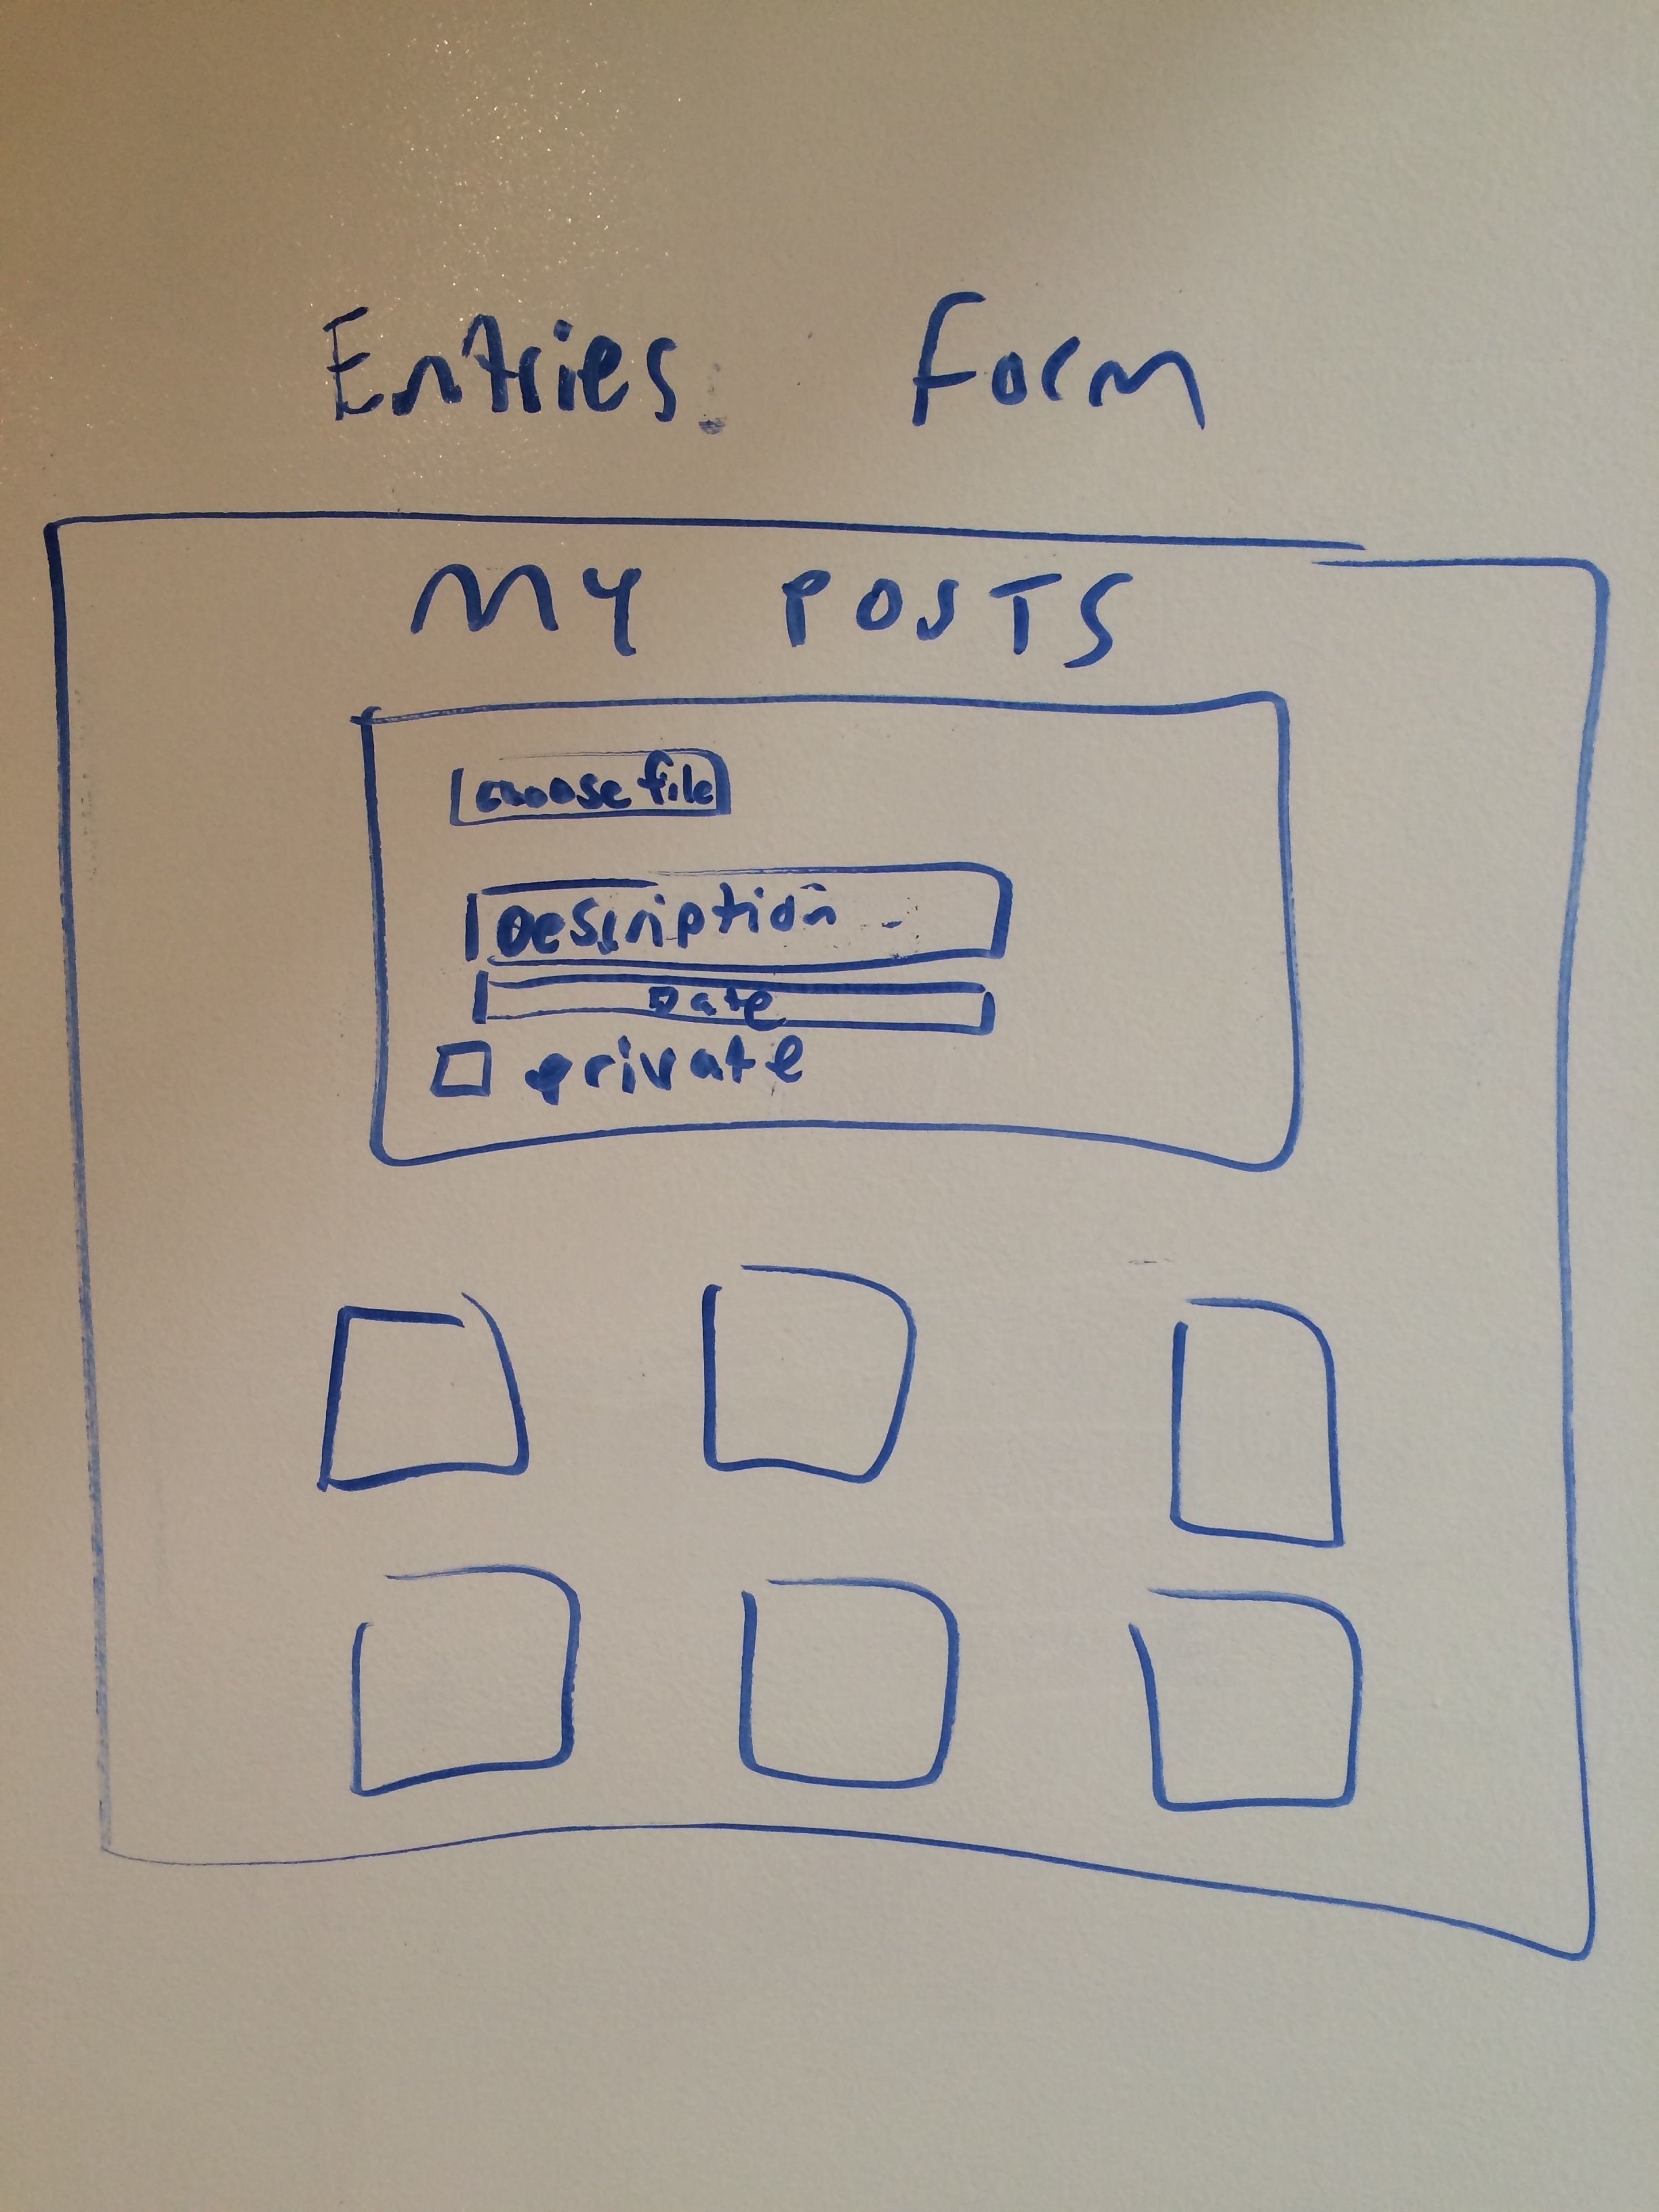 Entries Form
MY POSTS
choose file
Description
Date
private